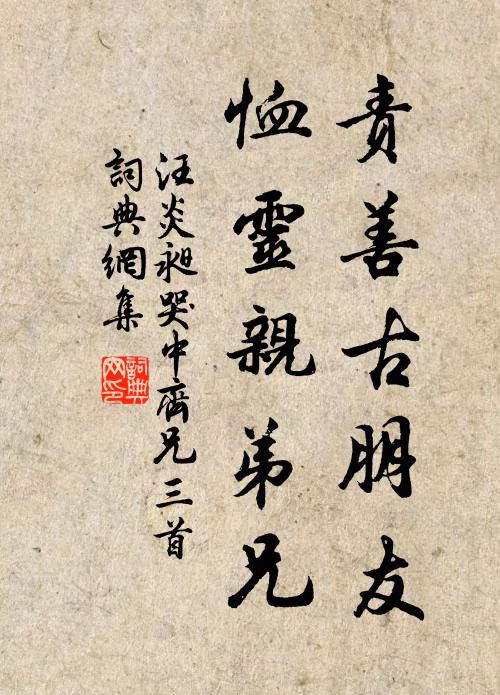 責善古朋友
恤靈親弟兄
汪炎昶哭中齊兄三首
詞典網集
詞典
网印